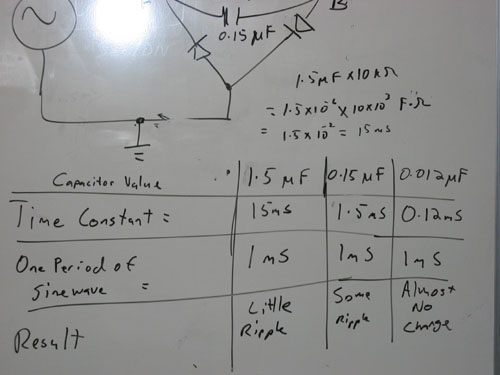 B
0.15 µF
1.5µF x 10kΩ
= 1.5x10⁻⁶ x 10x10³ F·Ω
= 1.5x10⁻² = 15ms
Capacitor Value 1.5 µF 0.15µF 0.012µF
Time Constant = 15ms 1.5ms 0.12ms
One Period of
Sinewave = 1ms 1ms 1ms
Result Little Ripple Some Ripple Almost No Change